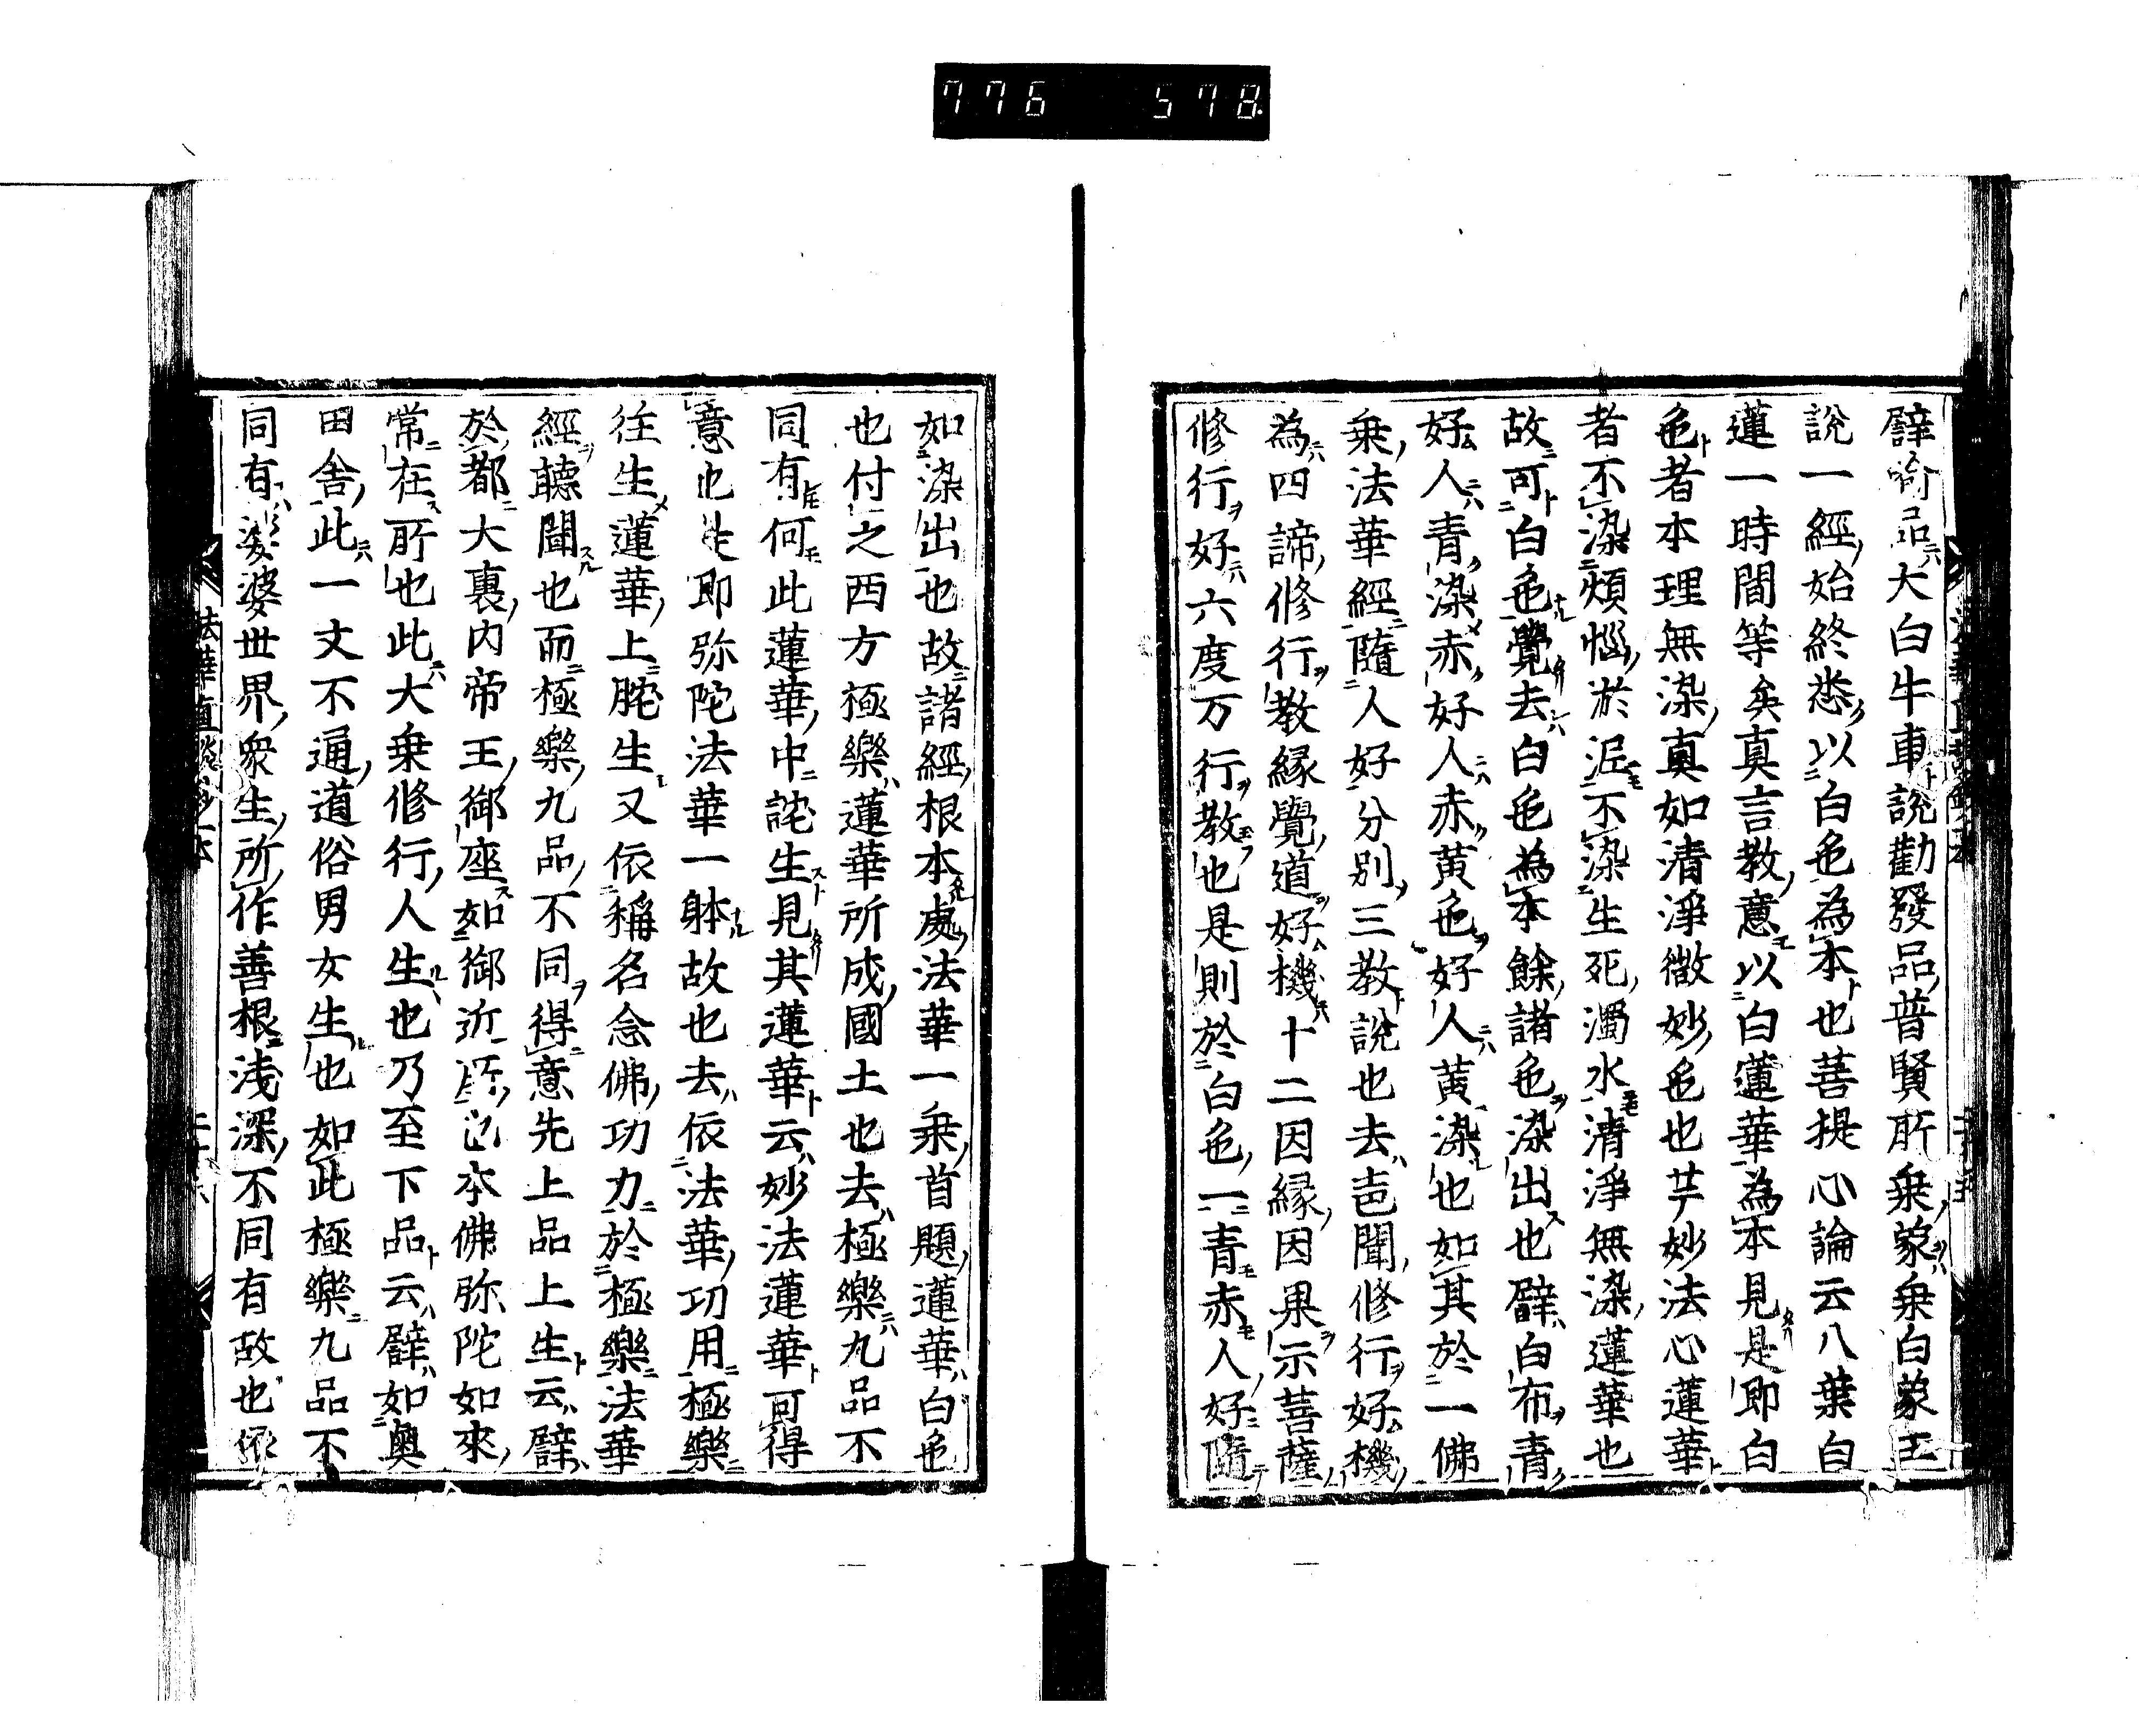 776 578
譬喩品大白牛車説勸發品普賢所乗象乗白蒙王
説一經始終悉以白色為本也菩提心論云八葉白
蓮一時間等矣真言教意以白蓮華為本見是即白
色者本理無染真如清淨微妙色也芋妙法心蓮華
者不染煩惱淤泥不染生死濁水清淨無染蓮華也
故可白色覺去白色為本餘諸色染出也譬白布青
好人青染赤好人赤黄色好人黄染也如其於一佛
乗法華經隨人好分別三教説也去声聞修行好機
為四諦修行教縁覺道好機十二因縁因果示菩薩
修行好六度万行教也是則於白色一青赤人好隨
如染出也故諸經根本處法華一乗首題蓮華白色
也付之西方極樂蓮華所成國土也去極樂九品不
同有何此蓮華中詫生見其蓮華云妙法蓮華可得
意也是即弥陀法華一躰故也去依法華功用極樂
往生蓮華上詫生又依稱名念佛功力於極樂法華
經聽聞也而極樂九品不同得意先上品上生云譬
於都大裏内帝王御座如御近所也本佛弥陀如來
常在所也此大乗修行人生也乃至下品云譬如奥
田舎此一文不通道俗男女生也如此極樂九品不
同有娑婆世界衆生所作善根淺深不同有故也依
法華直談鈔本